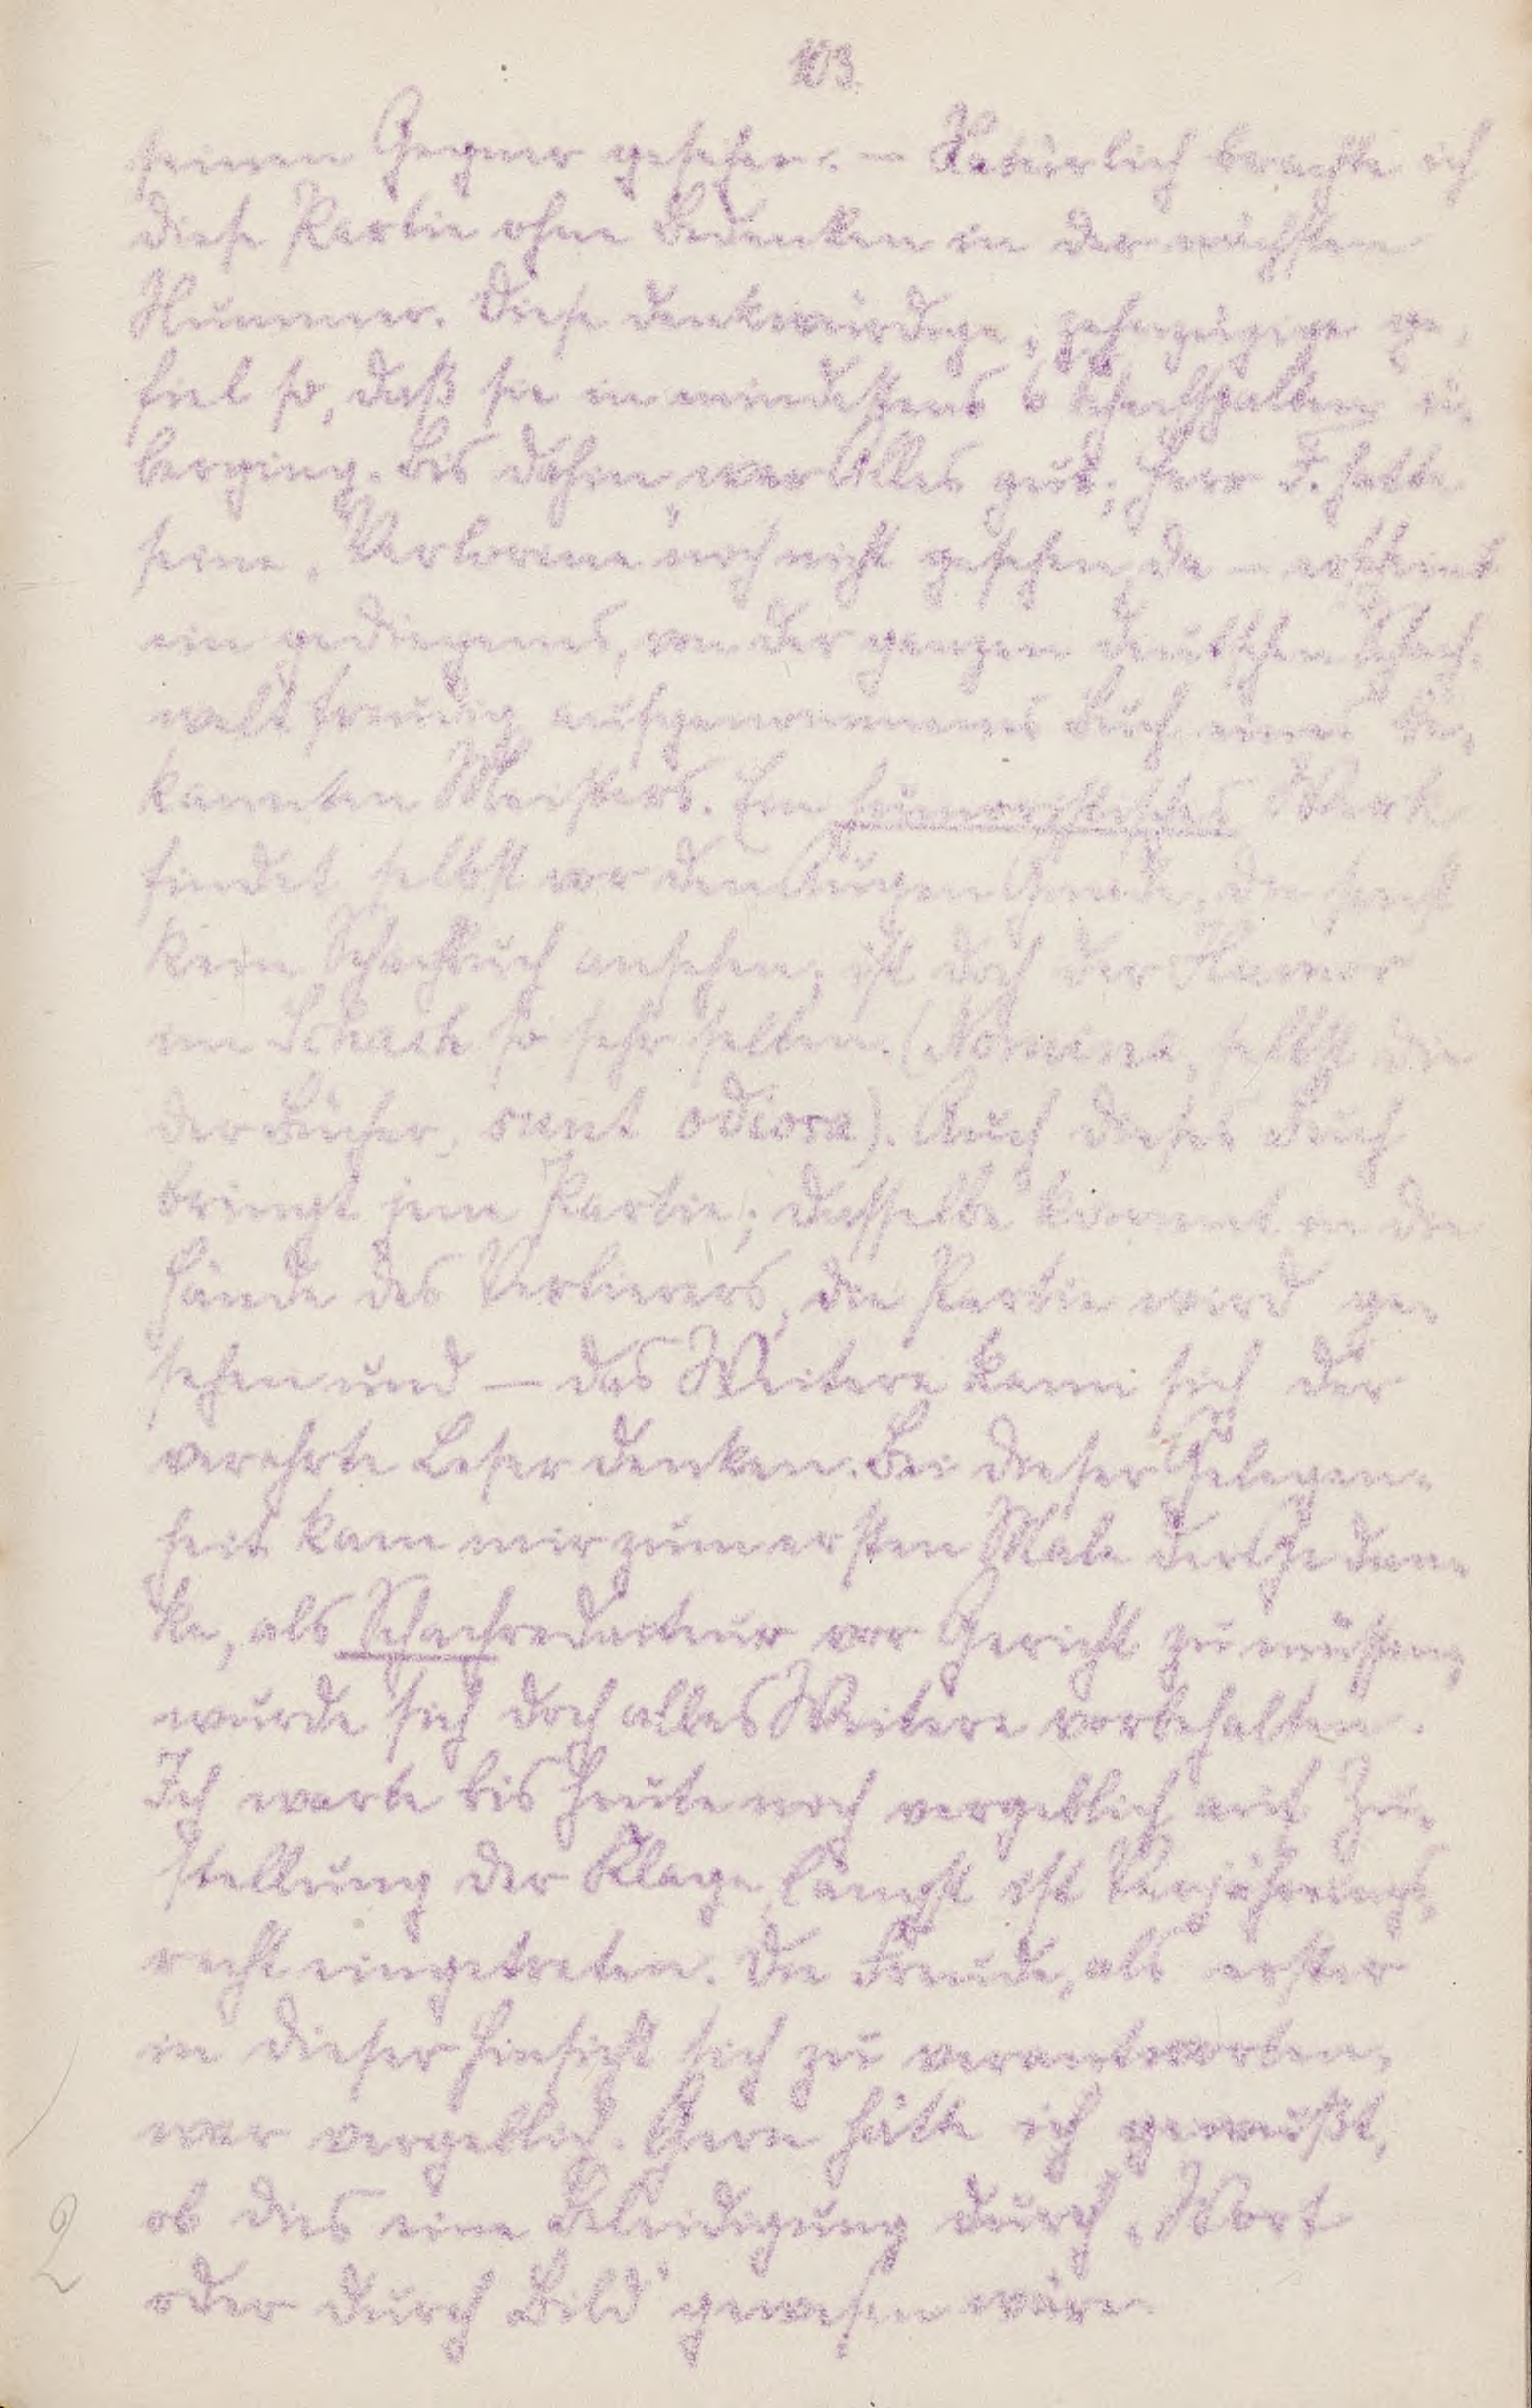 103.
seinen Gegner gesehen. — Natürlich brachte ich
diese Partie ohne Bedenken in der nächsten
Nummer. Diese denkwürdige, zehnzügige ge-
fiel so, daß sie in mindestens 6 Schachspalten ü-
berging. Bis dahin war Alles gut; Herr F. hatte
seine „Verlorene“ noch nicht gesehen, da — erscheint
ein gediegenes, von der ganzen deutschen Schach-
welt freudig aufgenommenes Buch eines be-
kannten Meisters. Ein humoristisches Werk
findet selbst vor den Augen Gnade, die sonst
kein Schachbuch ansehen; ist doch der Humor
im Schach so sehr selten. (Nomina, selbst die
der Bücher, sunt odiosa). Auch dieses Buch
bringt jene Partie; dasselbe kommt in die
Hände des Verlierers, die Partie wird ge-
sehen und — das Weitere kann sich der
verehrte Leser denken. Bei dieser Gelegen-
heit kam mir zum ersten Male der Gedan-
ke, als Schachredacteur vor Gericht zu müssen,
wurde sich doch alles Weitere vorbehalten.
Ich warte bis heute noch vergeblich auf Zu-
stellung der Klage, längst ist Verjährungs-
recht eingetreten. Die Freude, als erster
in dieser Hinsicht sich zu verantworten,
war vergeblich. Gern hätte ich gewußt,
ob dies eine Beleidigung durch „Wort
oder durch Bild“ gewesen wäre.
2